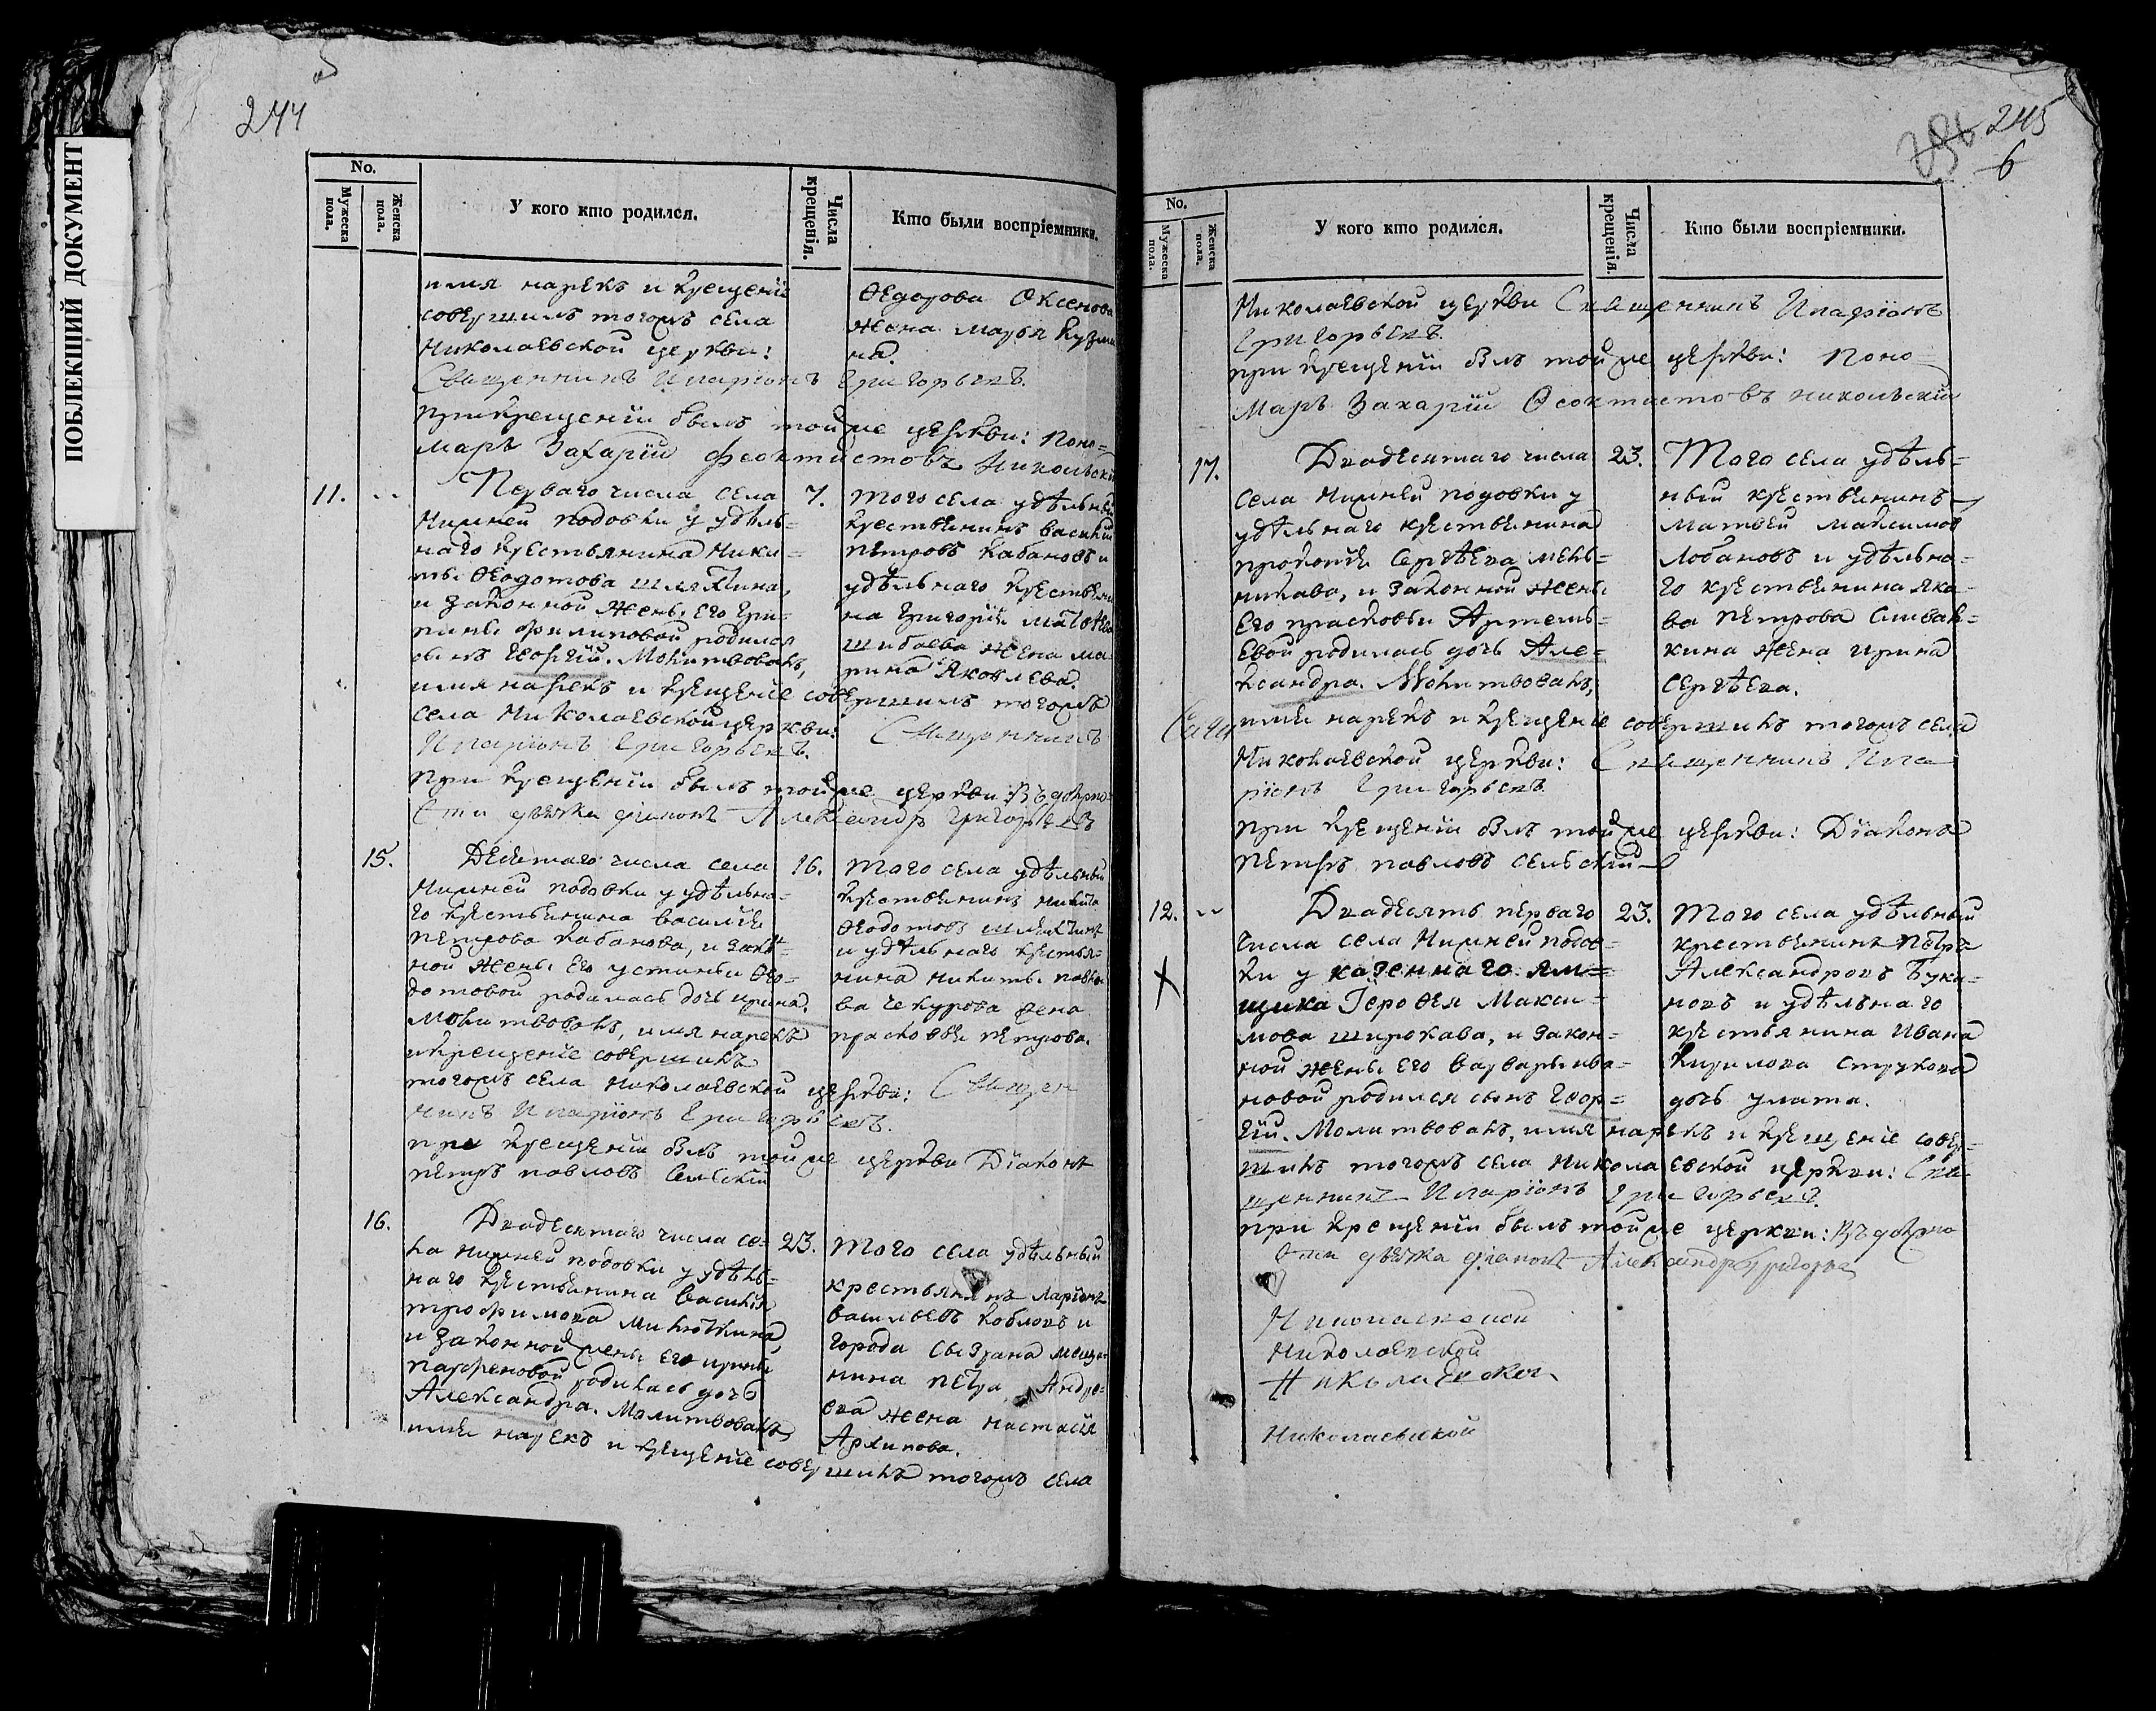 ПОБЛЕКШИЙ ДОКУМЕНТ
244
5
No.
Мужеска пола.
Женска пола.
У кого кто родился.
Числа крещенія.
Кто были воспріемники.
имя нарекъ и крещеніе
совершилъ тогожъ села
Николаевской церкви:
Священникъ Иларіонъ Григорьевъ.
при крещеніи былъ тойже церкви: поно=
марь Захарій Феоктистовъ Никольскій
Ѳедорова Оксенова
жена Марья Кузми
на.
11.
Перваго числа села
Нижней подовки у удѣль=
наго крестьянина Ники=
ты Ѳеодотова Шляхтина,
и законной жены его Ири=
ны Филиповой родился
сынъ Георгій. Молитвовалъ,
имя нарекъ и крещеніе совершилъ тогожъ
села Николаевской церкви: Священникъ
Иларіонъ Григорьевъ.
при крещеніи былъ тойже церкви: Въ должно
сти дьячка діаконъ Александръ Григорьевъ
7.
того села удѣльный
крестьянинъ Василій
Петровъ Кабановъ и
удѣльнаго крестьяни
на Григорія Матвѣева
Шибаева жена Ма=
рина Яковлева.
15.
Десятаго числа села
Нижней подовки у удѣльна=
го крестьянина Василія
Петрова Кабанова, и закон
ной жены его Устиньи Ѳео=
дотовой родилась дочь Ирина.
Молитвовалъ, имя нарекъ
и крещеніе совершилъ
тогожъ села Николаевской церкви: Священ
никъ Иларіонъ Григорьевъ.
при крещеніи былъ тойже церкви Діаконъ
Петръ Павловъ Сельскій
16.
того села удѣльный
крестьянинъ Никита
Ѳеодотовъ Шляхтинъ
и удѣльнаго крестья=
нина Никиты Павло
ва Чекурова жена
Прасковья Петрова.
16.
Двадесятаго числа се=
ла Нижней подовки у удѣль=
наго крестьянина Василія
Трофимова Милюткина,
и законной жены его Ирины
Парфеновой родилась дочь
Александра. Молитвовалъ
имя нарекъ и крещеніе совершилъ тогожъ села
23.
Того села удѣльный
крестьянинъ Ларіонъ
Васильевъ Кобловъ и
города Сызрана меща=
нина Петра Андре=
ева жена Настасія
Архипова.
245
6
No.
Мужеска пола.
Женска пола.
У кого кто родился.
Числа крещенія.
Кто были воспріемники.
Николаевской церкви Священникъ Иларіонъ
Григорьевъ.
при крещеніи былъ тойже церкви: поно=
марь Захарій Ѳеоктистовъ Никольскій
17.
Двадесятаго числа
села Нижней подовки у
удѣльнаго крестьянина
Прокопія Сергѣева Мель=
никава, и законной жены
его Прасковьи Артемь=
евой родилась дочь Але=
ксандра. Молитвовалъ,
имя нарекъ и крещеніе совершилъ тогожъ села
Николаевской церкви: Священникъ Ила
ріонъ Григорьевъ
при крещеніи былъ тойже церкви: Діаконъ
Петръ Павловъ Сельскій
23.
Того села удѣль=
ный крестьянинъ
Матвей Максимов
Лобановъ и удѣльна=
го крестьянина Яко=
ва Петрова Сливан=
кина жена Ирина
Сергѣева.
12.
Двадесять перваго
числа села Нижней подов=
ки у казеннаго ям=
щика Героѳея Макси=
мова Широкава, и закон=
ной жены его Варвары Ива=
новой родился сынъ Геор=
гій. Молитвовалъ, имя нарекъ и крещеніе совер=
шилъ тогожъ села Николаевской церкви: Свя
щенникъ Иларіонъ Григорьевъ
при крещеніи былъ тойже церкви: Въ должно
сти дьячка діаконъ Александръ Григорьевъ
23.
Того села удѣльный
крестьянинъ Петръ
Александровъ Бука=
новъ и удѣльнаго
крестьянина Ивана
Кирилова Струкова
дочь Улита.
Николаевской
Николаевской
Николаевской